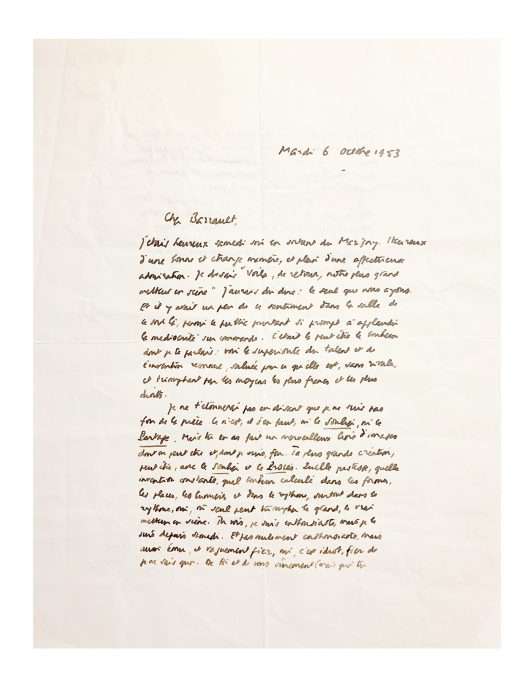 Mardi 6 octobre 1953
Cher Barrault,
j'étais heureux samedi soir en sortant du Marigny. Heureux
d'une bonne et étrange manière, et plein d'une affectueuse
admiration. Je disais "Voilà, de retour, notre plus grand
metteur en scène" J'aurais du dire : le seul que nous ayons.
Et il y avait un peu de ce sentiment dans la salle de
ce soir là, parmi le public pourtant si prompt à applaudir
la médiocrité sur commande. C'était là peut être le bonheur
dont je te parlais : voir la supériorité du talent et de
l'invention reconnue, saluée pour ce qu'elle est, sans rivale,
et triomphant par les moyens les plus francs et les plus
droits.
Je ne t'étonnerai pas en disant que je ne suis pas
fou de la pièce. Ce n'est, et s'en faut, ni le Soulier, ni le
Partage. Mais tu en as fait un merveilleux livre d'images
dont on peut être et dont je suis, fou. Ta plus grande création,
peut être, avec le Soulier et le Procès. Quelle justesse, quelle
invention constante, quel bonheur calculé dans les formes,
les places, les lumières et dans le rythme, surtout dans le
rythme, où, seul peut triompher le grand, le vrai
metteur en scène. Tu vois, je suis enthousiaste, mais je le
suis depuis samedi. Et pas seulement enthousiaste, mais
aussi ému et vaguement fier, oui, c'est idiot, fier de
je ne sais quoi. De toi et de vous sûrement (